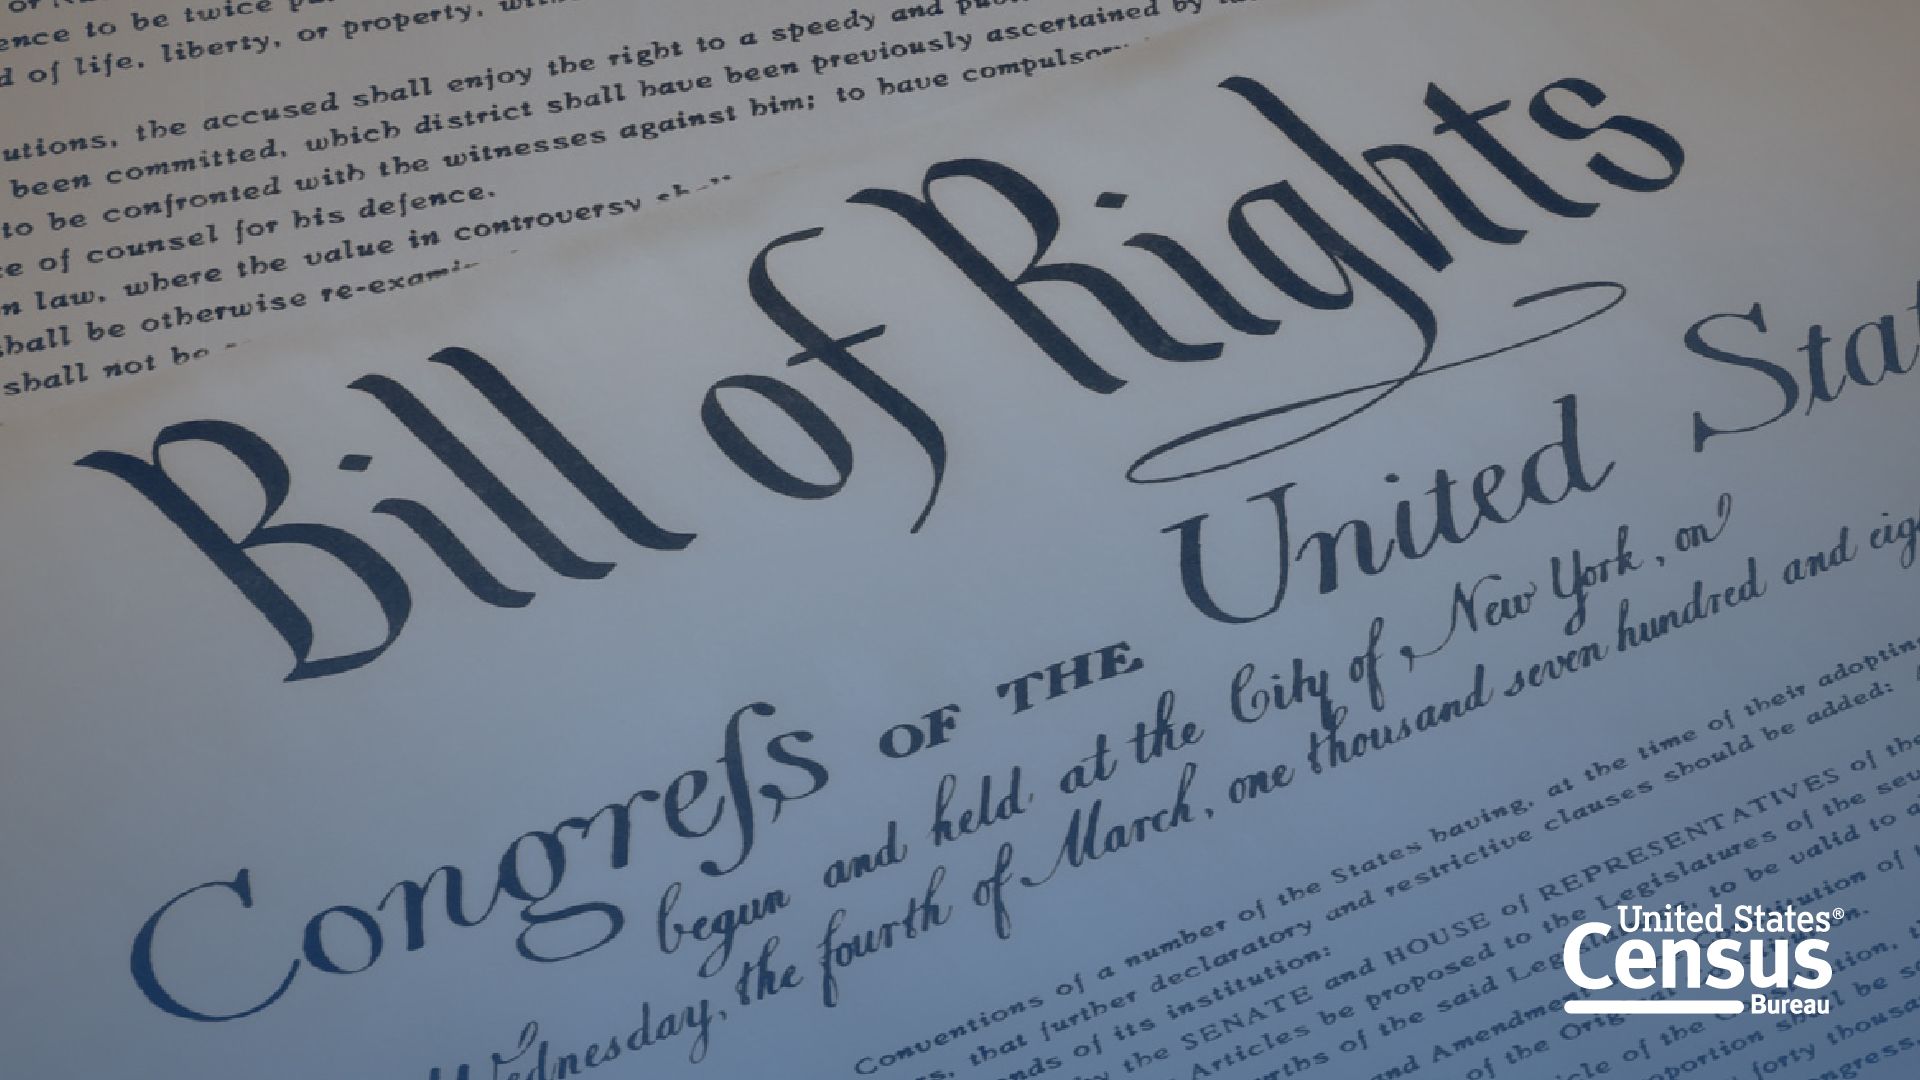 ence to be twice
d of life, liberty, or property,
utions, the accused shall enjoy the right to a speedy and
been committed, which district shall have been previously ascertained by
to be confronted with the witnesses against him; to have
e of counsel for his defence.
n law, where the value in controversy
shall be otherwise
shall not be
Bill of Rights
Congreſs OF THE United Stat
begun and held at the City of New York, on
Wednesday, the fourth of March, one thousand seven hundred and eig
Conventions of a number of the States having, at the time of their adopting
s, that further declaratory and restrictive clauses should be added:
nds of its institution:
the SENATE and HOUSE of REPRESENTATIVES of the
Articles be proposed to the Legislatures of the
rths of the said to be valid to
and of the
of the
cle of the
forty
United States®
Census
Bureau